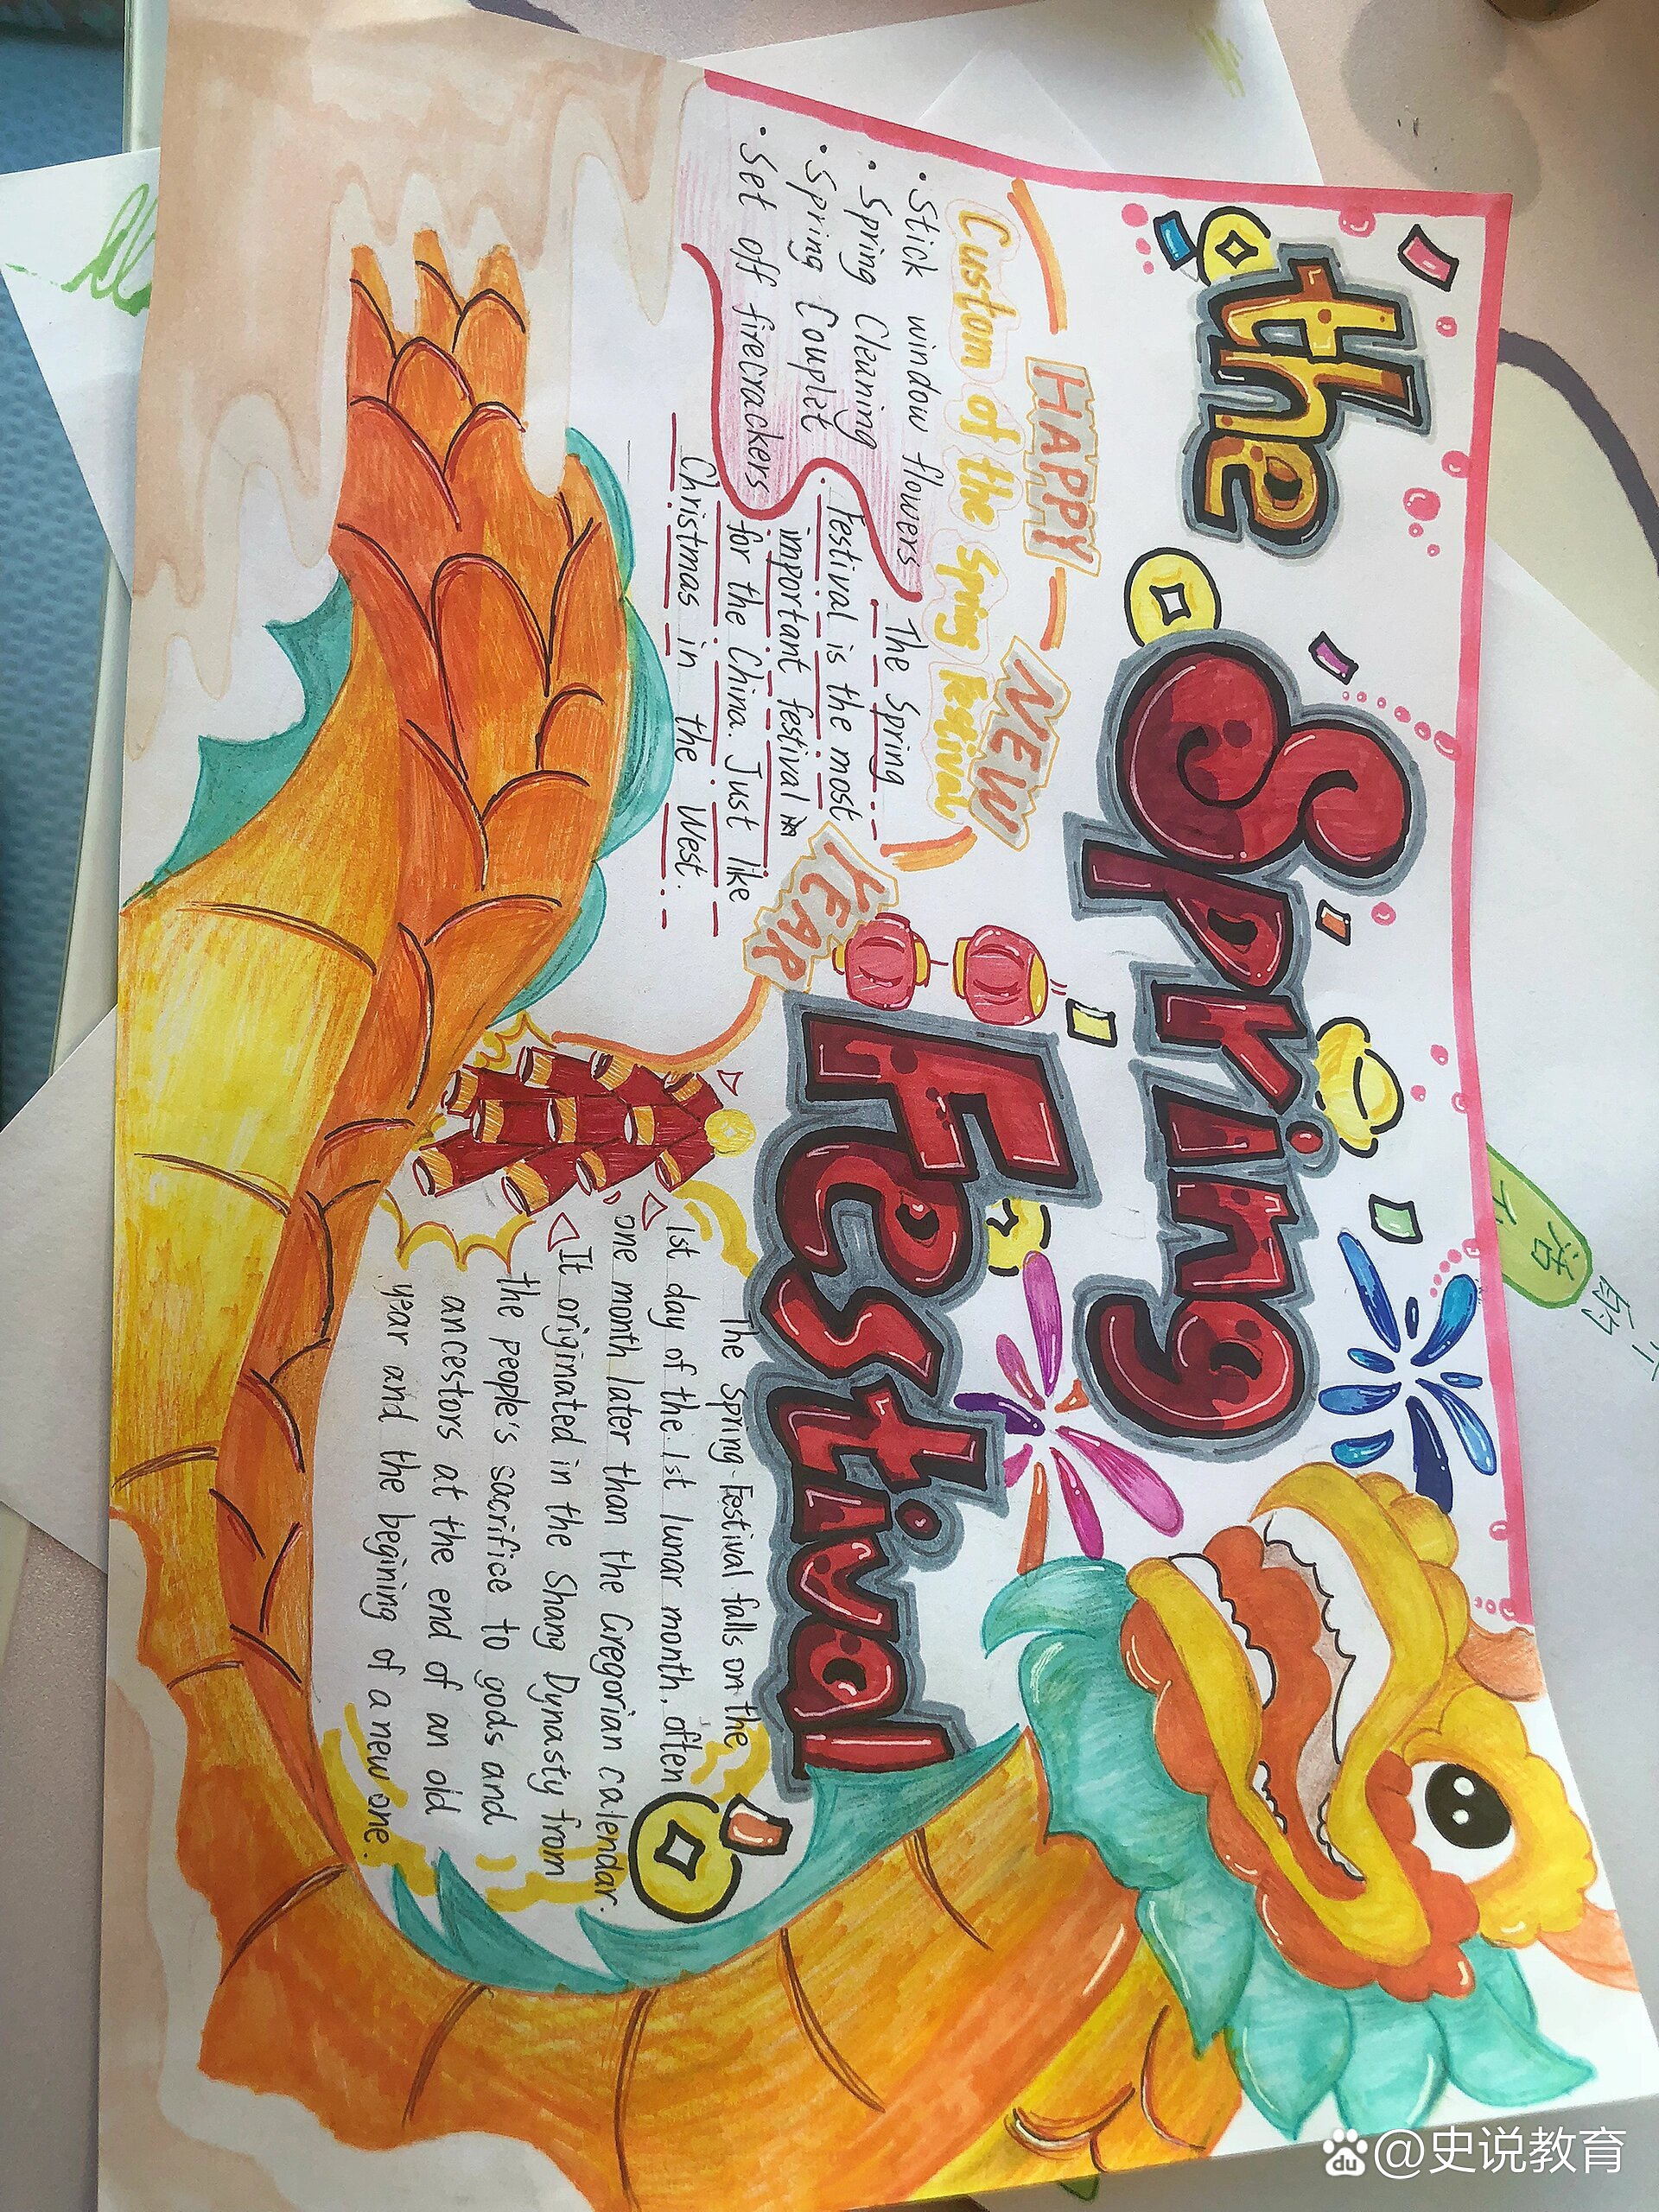 the
Spring
Festival
HAPPY
NEW
YEAR
Custom of the Spring Festival
• Stick window flowers
• Spring Cleaning
• Spring Couplet
• Set off firecrackers
The Spring
Festival is the most
important festival
for the China. Just like
Christmas in the West.
The Spring Festival falls on the
1st day of the 1st lunar month, often
one month later than the Gregorian calendar.
It originated in the Shang Dynasty from
the people's sacrifice to gods and
ancestors at the end of an old
year and the begining of a new one.
活
的
du @史说教育